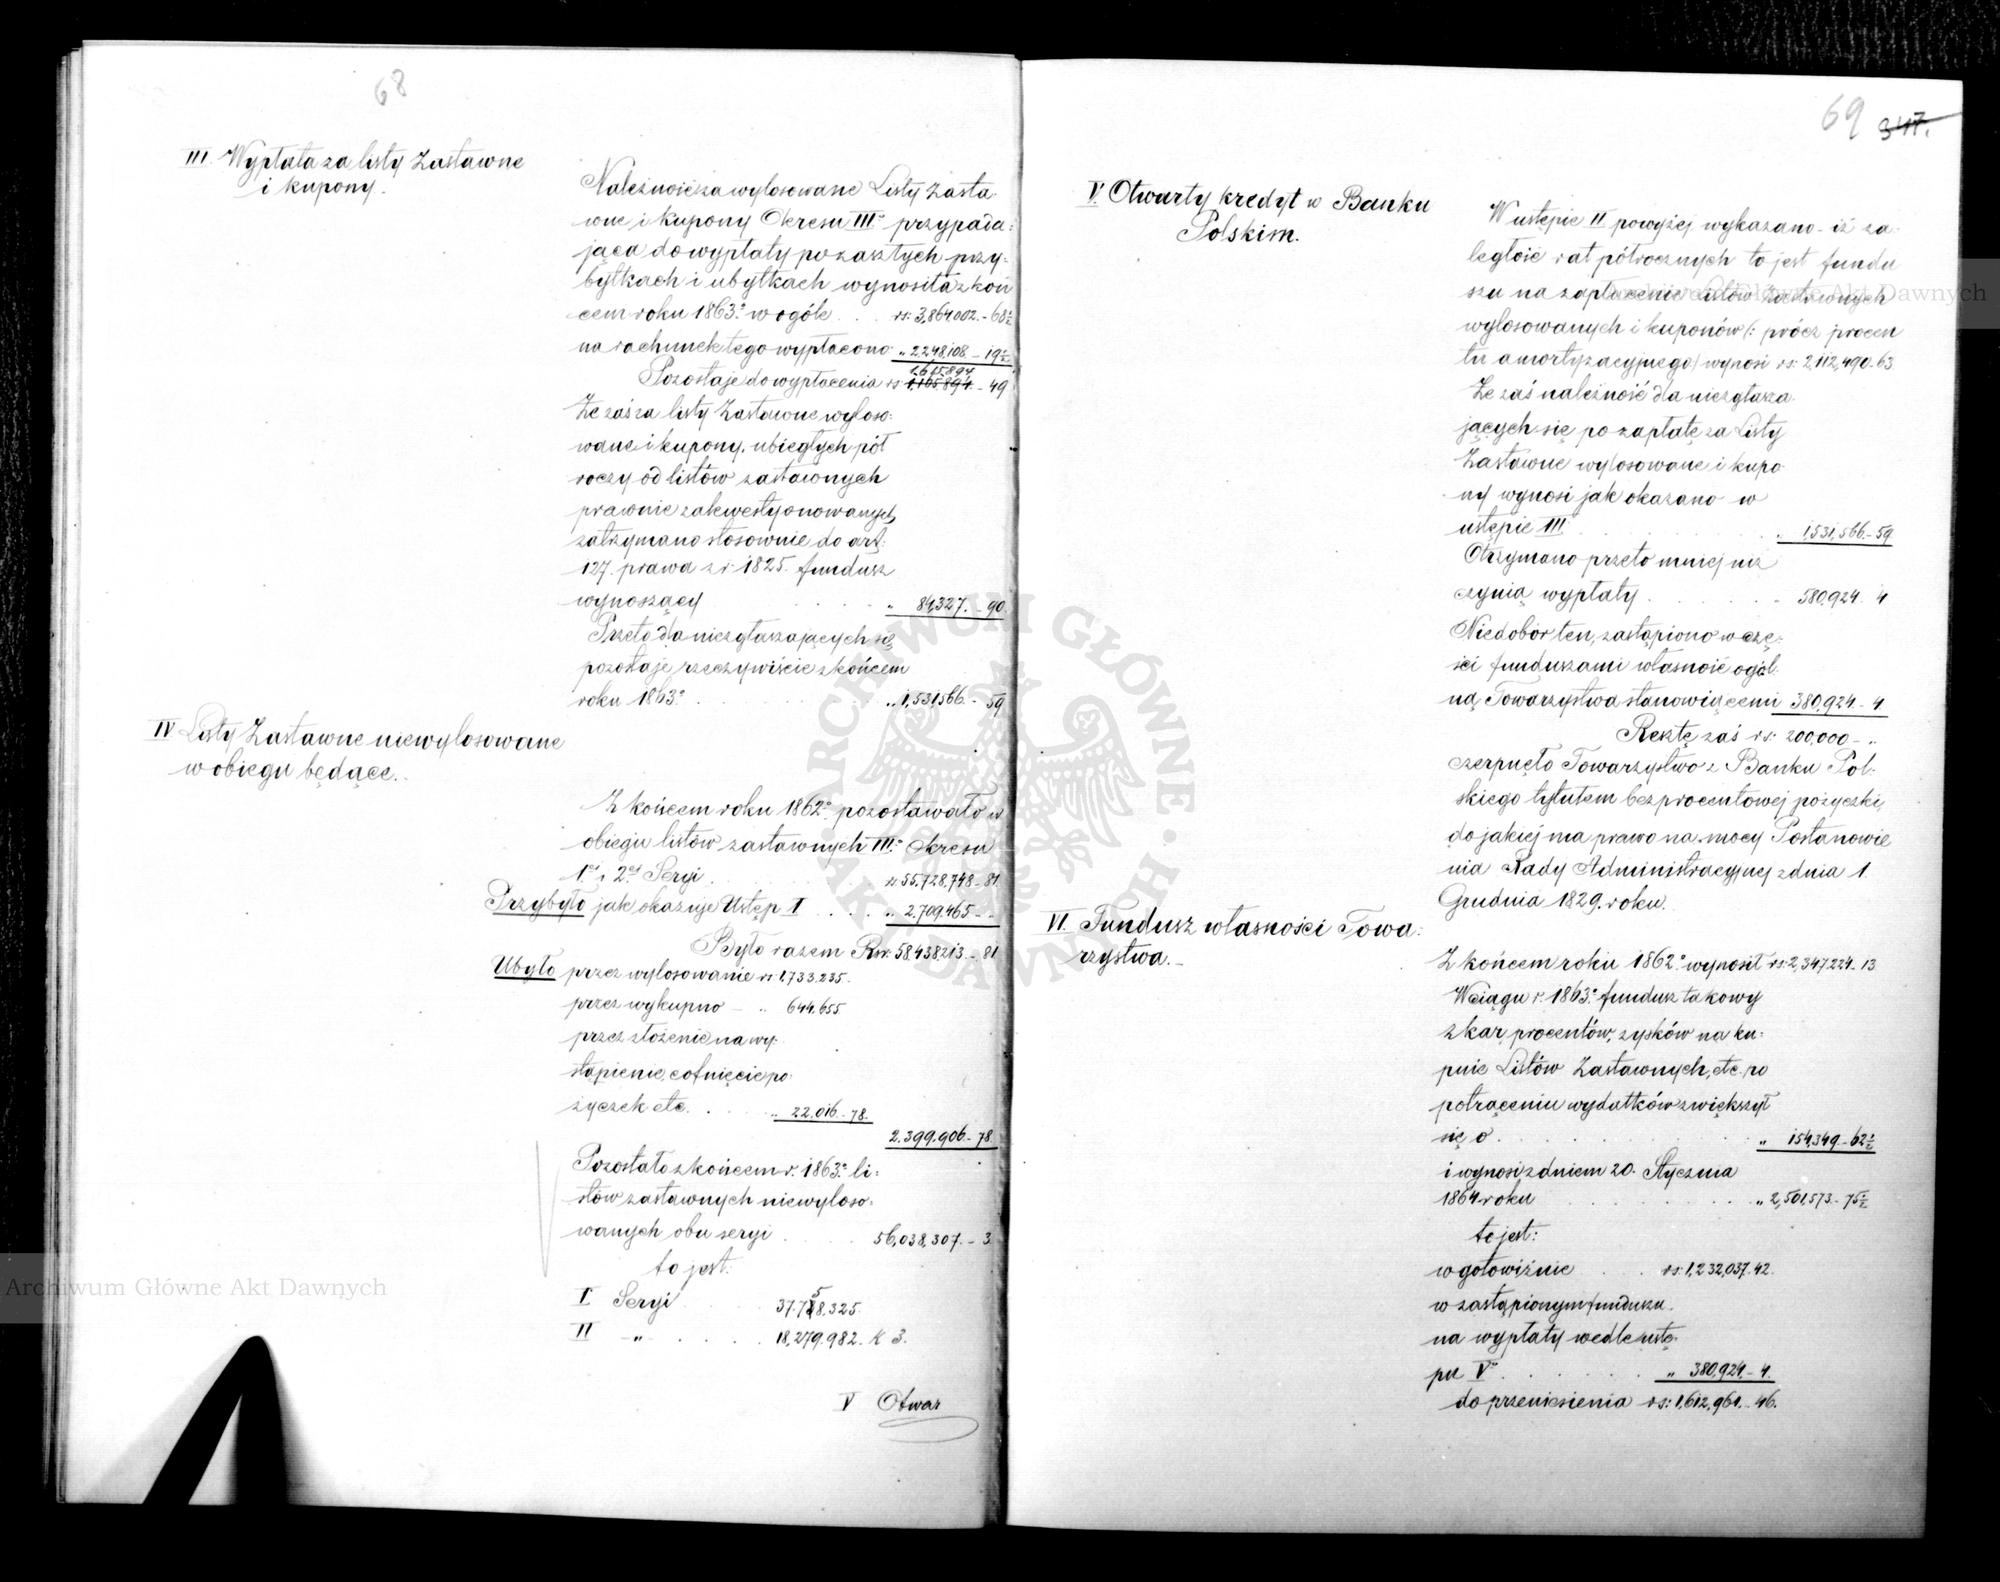 68
III. Wypłata za listy Zastawne
i kupony.
Należność za wylosowane Listy Zasta-
wne i kupony Okresu IIIo przypada-
jąca do wypłaty po zaszłych przy-
bytkach i ubytkach wynosiła z koń
cem roku 1863o w ogóle . . rs: 3,864,002.-68½
na rachunek tego wypłacono „ 2,248,108 - 19½
1,615,894
Pozostaje do wypłacenia rs 1,165,894 - 49
Że zaś za listy Zastawne wyloso-
wane i kupony, ubiegłych pół
roczy od listów zastawnych
prawnie zakwestyonowanych,
zatrzymano stosownie do art:
127. prawa z r: 1825. fundusz
wynoszący . . . „ 84,327. - 90.
Przeto dla niezgłaszających się
pozostaje rzeczywiście z końcem
roku 1863o . . . „ 1,531,566. - 59
IV Listy Zastawne niewylosowane
w obiegu będące.
Z końcem roku 1862o pozostawało w
obiegu listów zastawnych IIIo Okresu
1ej i 2ej Seryi . . . rs 55,728,748 - 81
Przybyło jak okazuje Ustęp I . . . „ 2.709.465 - -
Było razem Rsr: 58,438,213. - 81
Ubyło przez wylosowanie rs 1,733.235.
przez wykupno - „ 644.655
przez złożenie na wy-
stąpienie, cofnięcie po-
życzek etc. . . „ 22,016 - 78.
2.399.906 - 78.
Pozostało z końcem r. 1863o li-
stów zastawnych niewyloso-
wanych obu seryi . . . 56,038,307. - 3
to jest:
I Seryi . . . 37.758.325.
II - „ - . . . 18,279.982. k 3.
V Otwar
69 347.
V. Otwarty kredyt w Banku
Polskim.
W ustępie II powyżej wykazano - iż za-
ległość rat półrocznych to jest fundu
szu na zapłacenie Listów Zastawnych
wylosowanych i kuponów (: prócz procen
tu amortyzacyjnego) wynosi rs: 2,112,490.63
Że zaś należność dla niezgłasza-
jących się po zapłatę za Listy
Zastawne wylosowane i kupo-
ny wynosi jak okazano w
ustępie III . . . „ 1,531,566. - 59
Otrzymano przeto mniej niż
czynią wypłaty . . . 580,924. 4
Niedobór ten, zastąpiono w czę-
ści funduszami własność ogól-
ną Towarzystwa stanowiącemi 380,924 - 4
Resztę zaś rs: 200,000 - „
czerpnęło Towarzystwo z Banku Pol-
skiego tytułem bezprocentowej pożyczki,
do jakiej ma prawo na mocy Postanowie
nia Rady Administracyjnej z dnia 1.
Grudnia 1829. roku.
VI. Fundusz własności Towa-
rzystwa. -
Z końcem roku 1862o wynosił rs: 2,347,224 - 13
W ciągu r. 1863o fundusz takowy
z kar, procentów, zysków na ku-
pnie Listów Zastawnych, etc. po
potrąceniu wydatków zwiększył
się o . . . „ 154,349 - 62½
i wynosi z dniem 20. Stycznia
1864 roku . . . „ 2,501,573 - 75½
to jest:
w gotowiźnie . . . rs: 1,232,037. 42.
w zastąpionym funduszu
na wypłaty wedle ustę-
pu Vo . . . „ 380,924. - 4.
do przeniesienia rs: 1,612,961. - 46.
ARCHIWUM GŁÓWNE AKT DAWNYCH
Archiwum Główne Akt Dawnych
Archiwum Główne Akt Dawnych